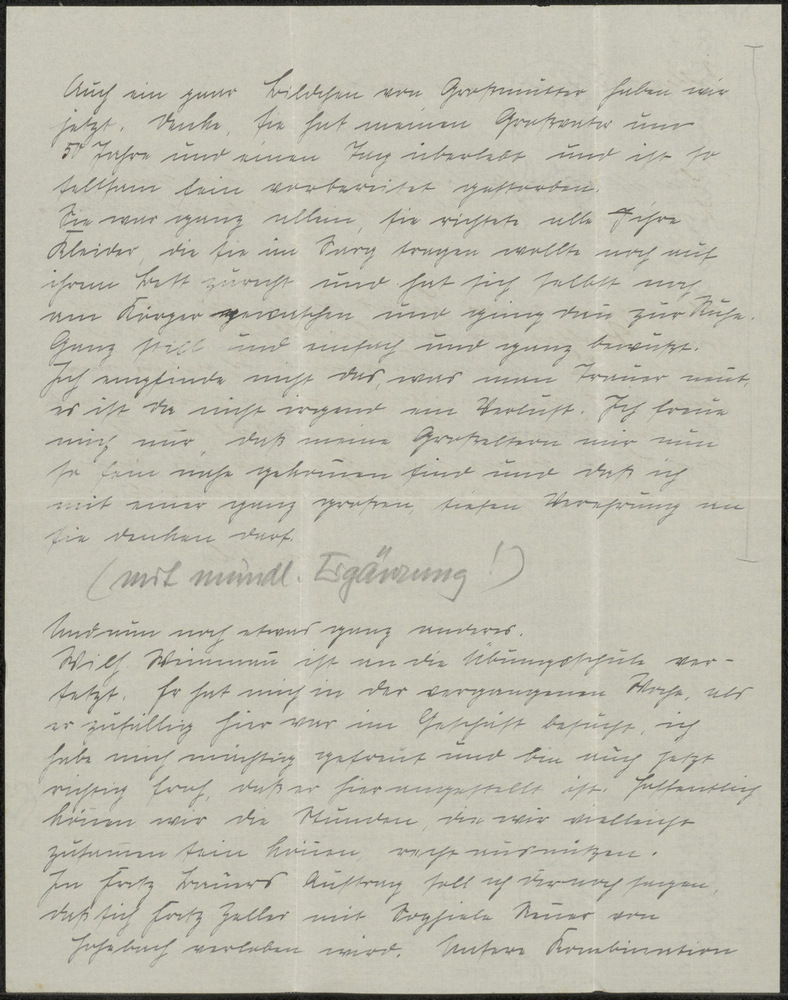 Auch ein paar Bildchen von Großmutter haben wir
jetzt. Denke, sie hat meinen Großvater um
50 Jahre und einen Tag überlebt und ist so
seltsam fein vorbereitet gestorben.
Sie war ganz allein, sie richtete alle Ihre
Kleider, die sie im Sarg tragen wollte noch auf
ihrem Bett zurecht und hat sich selbst noch
am Körper gewaschen und ging dan zur Ruhe.
Ganz still und einfach und ganz bewußt.
Ich empfinde nicht das, was man Trauer nent,
es ist da nicht irgend ein Verlust. Ich freue
mich nur, daß meine Großeltern mir nun
so fein nahe gekommen sind und daß ich
mit einer ganz großen, tiefen Verehrung an
sie denken darf.
(mit mündl. Ergänzung!)
Und nun noch etwas ganz anderes.
Wilh. Wimman ist an die Übungsschule ver-
setzt. Er hat mich in der vergangenen Woche, als
er zufällig hier war im Geschäft besucht, ich
habe mich mächtig gefreut und bin auch jetzt
richtig froh, daß er hier angestellt ist. Hoffentlich
können wir die Stunden, die wir vielleicht
zusammen sein können, recht ausnützen.
In Fritz Bauers Auftrag soll ich dir noch sagen,
daß sich Fritz Zeller mit Sophiele von
Hohebach verloben wird. Unsere Kombination